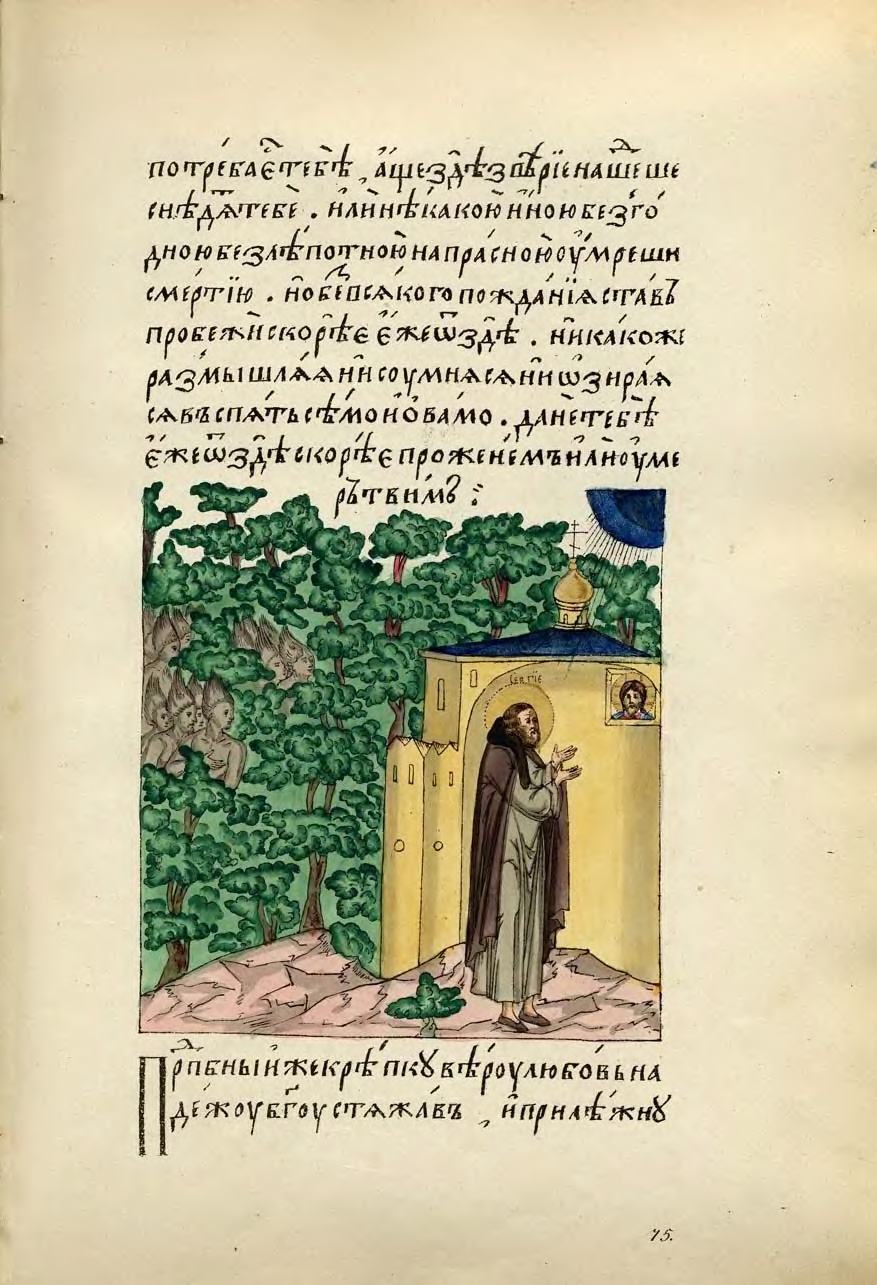 потребаетебѣ, ащездѣзвѣрїенашеше
снѣдѧтебе. илинѣкакоюиноюбезго
дноюбезлѣпотноюнапрасноюоумреши
смертїю. нобевсѧкогопожданїѧставъ
пробежискорѣе ежеѿздѣ. никакоже
размышлѧѧнисоумнѧсѧниѡзираѧ
сѧвъспѧтьсѣмоиовамо. данетебѣ
ежеѿздѣскорѣепроженемъилиоуме
рътвимъ:
Сергіе
Прпбныйжекрѣпкꙋвѣроулюбовьна
дежоукбгоустѧжавъ, иприлѣжнꙋ
75.